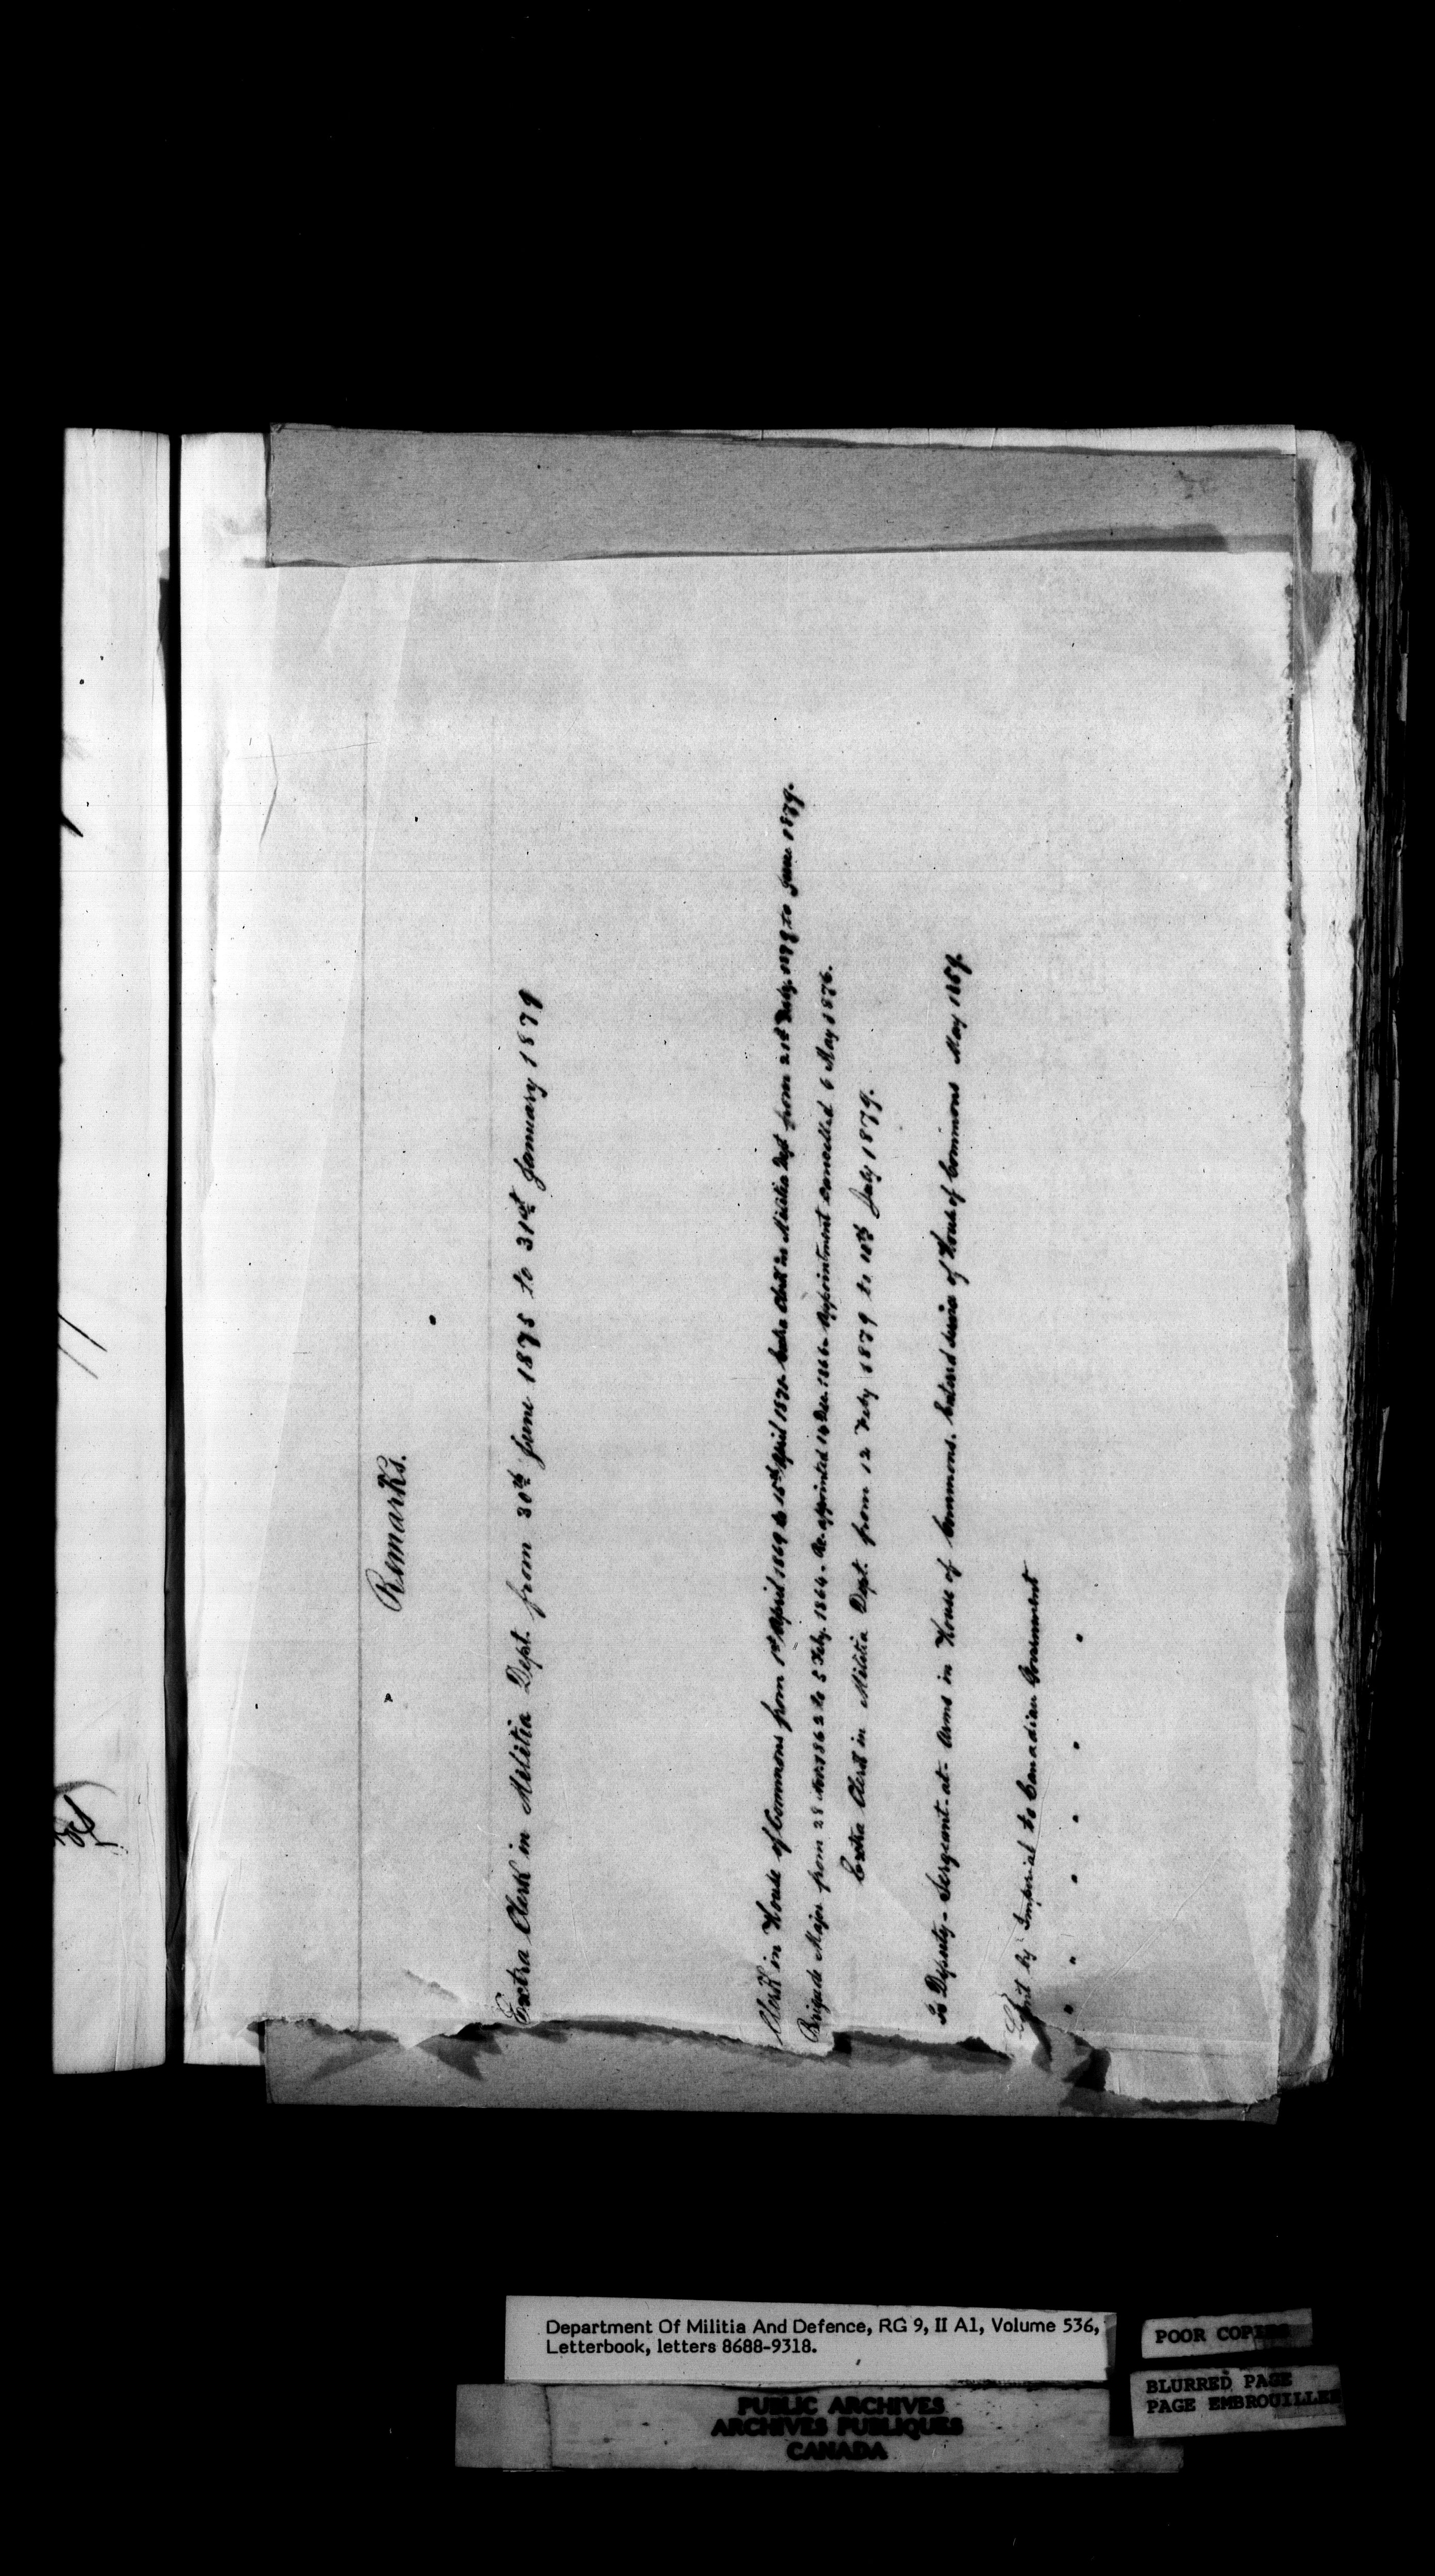 Remarks.
Extra Clerk in Militia Dept. from 30th June 1875 to 31st January 1879
Clerk in House of Commons from 1st April 1869 to 15th April 1870 Extra Clerk in Militia Dept from 21st Feby. to June 1879.
Brigade Major from 28 Nov 1862 to 5 Feby. 1864. Re-appointed 14 Dec. 1866. Appointment cancelled 6 May 1876.
Extra Clerk in Militia Dept. from 12 Feby 1879 to 10th July 1879.
Deputy-Sergeant-at-Arms in House of Commons. Entered service of House of Commons May
by Imperial to Canadian Government
" " " " " "
Department Of Militia And Defence, RG 9, II A1, Volume 536,
Letterbook, letters 8688-9318.
POOR COPIES
BLURRED PAGE
PAGE EMBROUILLEE
PUBLIC ARCHIVES
ARCHIVES PUBLIQUES
CANADA